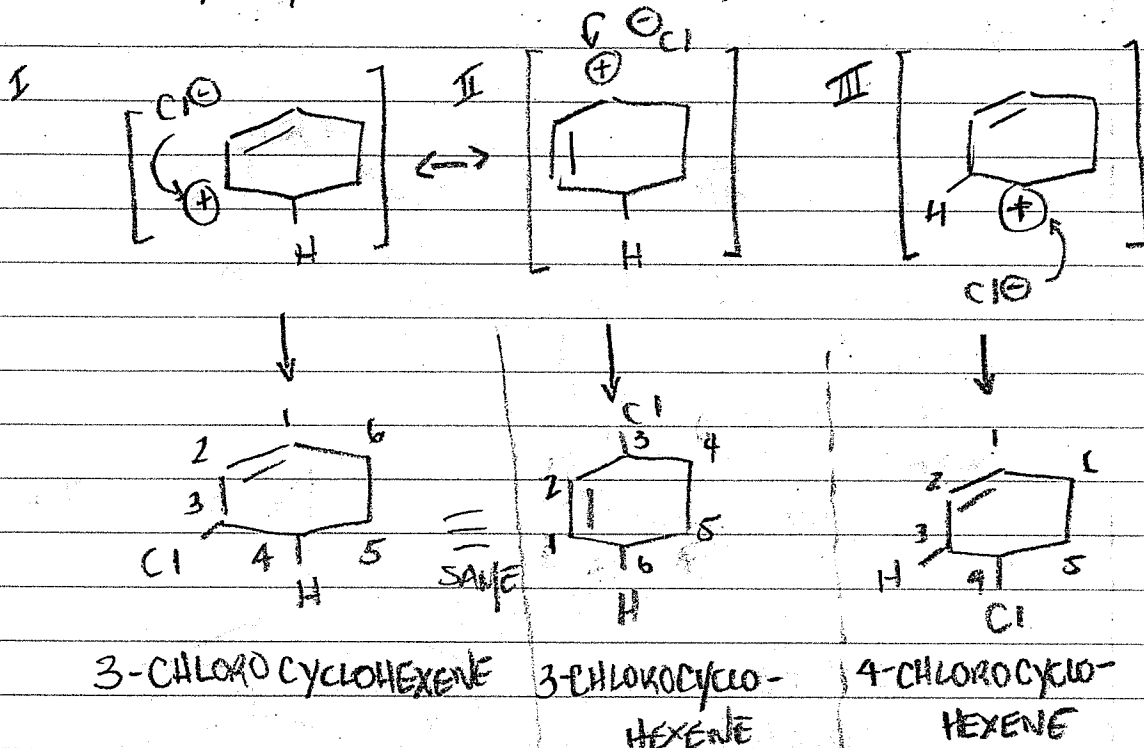 I
Cl⊖
⊕
H
↔
II
⊖Cl
⊕
H
III
H
⊕
Cl⊖
1
2
6
3
Cl
4
5
H
≡
SAME
Cl
3
4
2
1
5
6
H
1
2
3
5
H
4
Cl
3-CHLOROCYCLOHEXENE
3-CHLOROCYCLO-
HEXENE
4-CHLOROCYCLO-
HEXENE